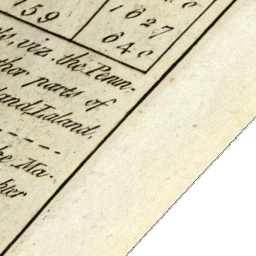 159
1627
640
le, viz. the Penn-
ther parts of
land, Ireland,
he Ma-
bier